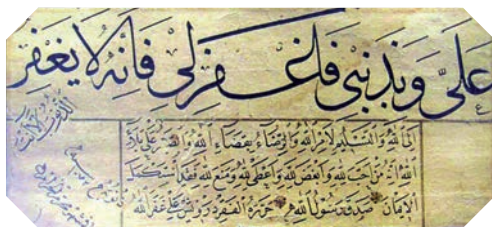 عَلَيَّ وَبِذَنْبِي فَاغْفِرْ لِي فَإِنَّهُ لَا يَغْفِرُ
الذنوب الا انت
الى الله والتسليم لامر الله والرضاء بقضاء الله والصبر على بلاء
الله انه من احب لله وابغض لله واعطى لله ومنع لله فقد استكمل
الايمان صدق رسول الله حرره الفقير درويش على غفر الله